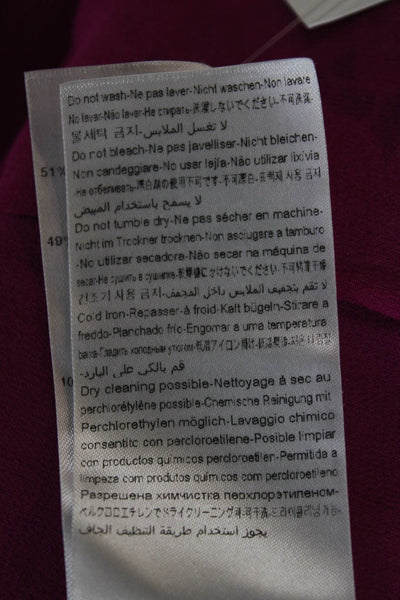 Do not wash-Ne pas laver-Nicht waschen-Non lavare
No lavar-Não lavar-Не стирать-洗濯しないでください-不可洗滌-
물세탁 금지-لا تغسل الملابس
Do not bleach-Ne pas javelliser-Nicht bleichen-
Non candeggiare-No user lejía-Não utilizar lixívia
-Не отбеливать-漂白剤の使用不可です-不可漂白-표백제 사용 금지
لا يسمح باستخدام المبيض
Do not tumble dry-Ne pas sécher en machine-
Nicht im Trockner trocknen-Non asciugare a tamburo
-No utilizar secadora-Não secar na máquina de
secar-Не сушить в сушилке-乾燥機にかけないでください-不可转笼干燥
건조기 사용 금지-لا تقم بتجفيف الملابس داخل المجفف-
Cold Iron-Repasser-à froid-Kalt bügeln-Stirare a
freddo-Planchado frío-Engomar a uma temperatura
baixa-Гладить холодным утюгом-低温アイロン掛け-低温熨烫-
قم بالكى على البارد-
Dry cleaning possible-Nettoyage à sec au
perchlorétylène possible-Chemische Reinigung mit
Perchlorethylen möglich-Lavaggio chimico
consentito con percloroetilene-Posible limpiar
con productos químicos percloroetilen-Permitida a
limpeza com produtos químicos com percloroetileno
Разрешена химчистка перхлорэтиленом-
ペルクロロエチレンでドライクリーニング可-可干洗-드라이클리닝 가능-
يجوز استخدام طريقة التنظيف الجاف
51%
49%
10